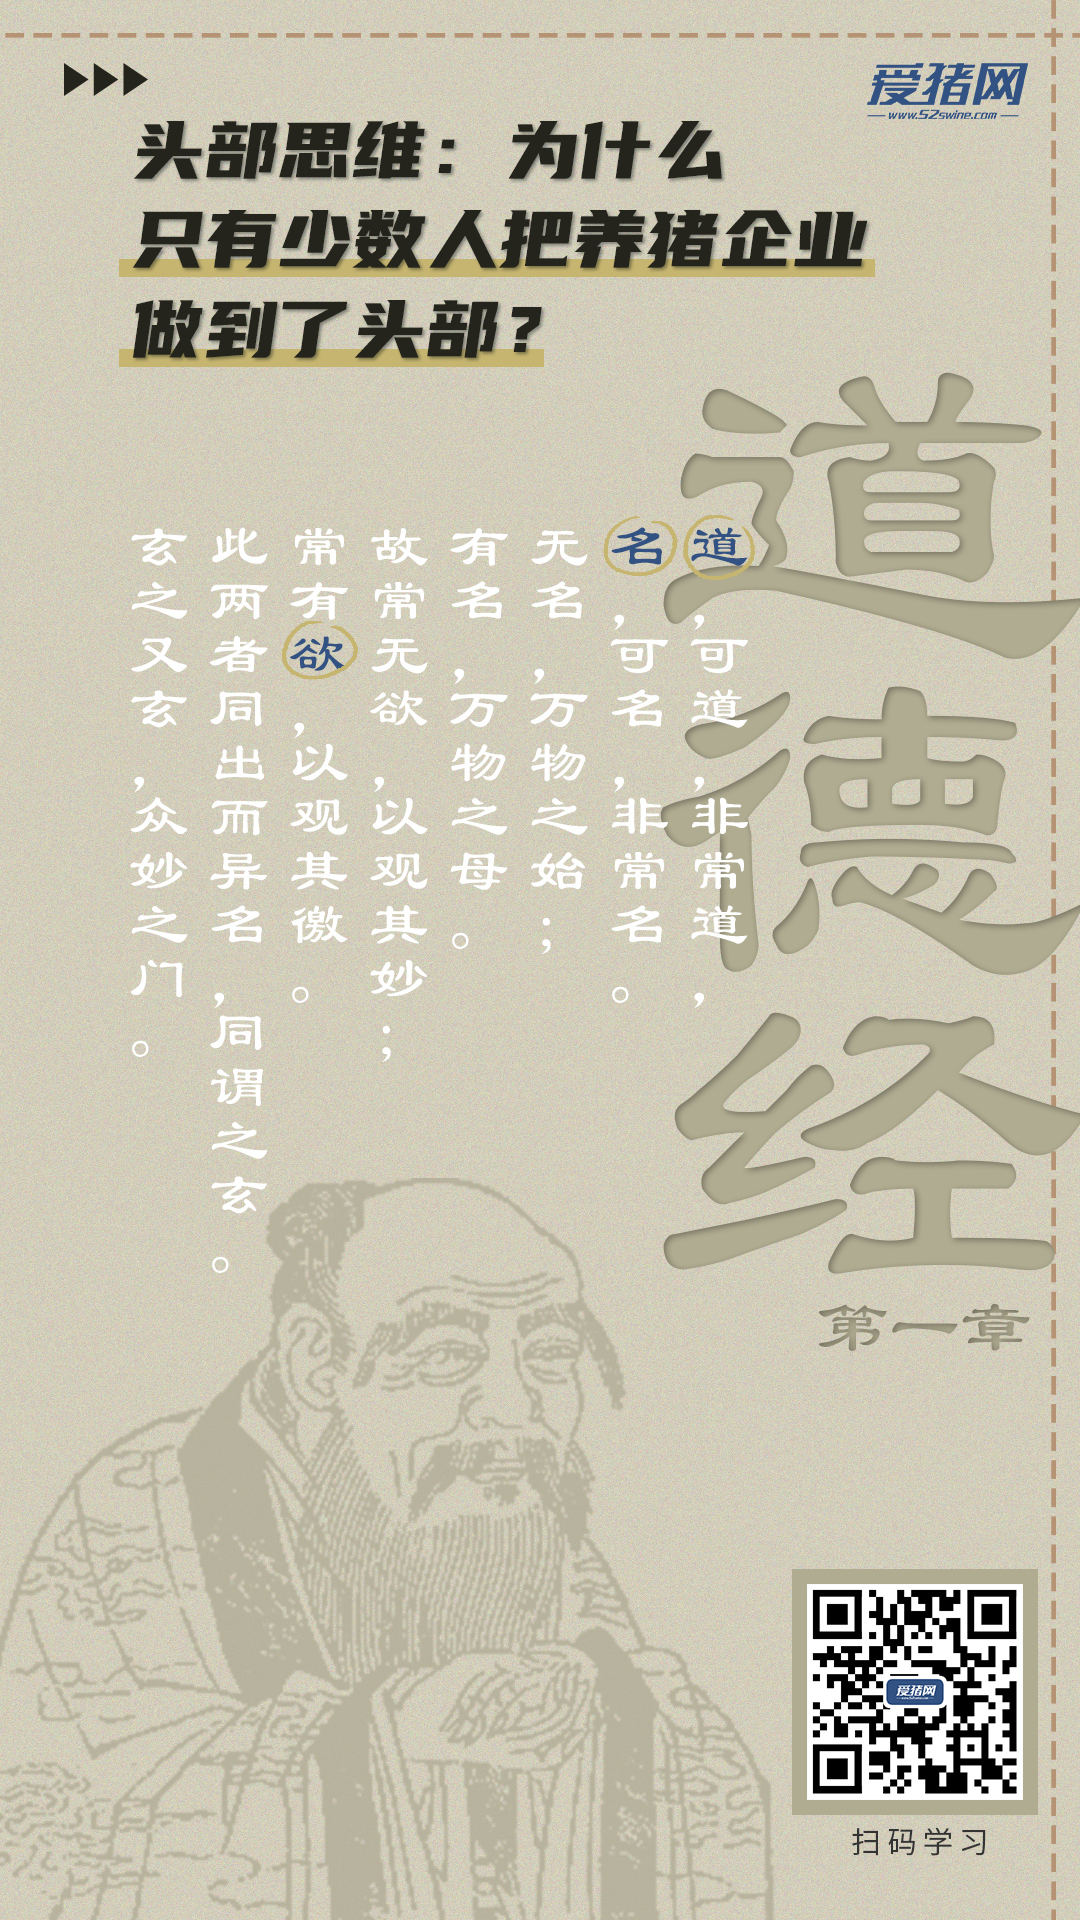 爱猪网
www.52swine.com
头部思维：为什么
只有少数人把养猪企业
做到了头部？
道德经
第一章
道，可道，非常道，
名，可名，非常名。
无名，万物之始；
有名，万物之母。
故常无欲，以观其妙；
常有欲，以观其徼。
此两者同出而异名，同谓之玄。
玄之又玄，众妙之门。
爱猪网
扫码学习